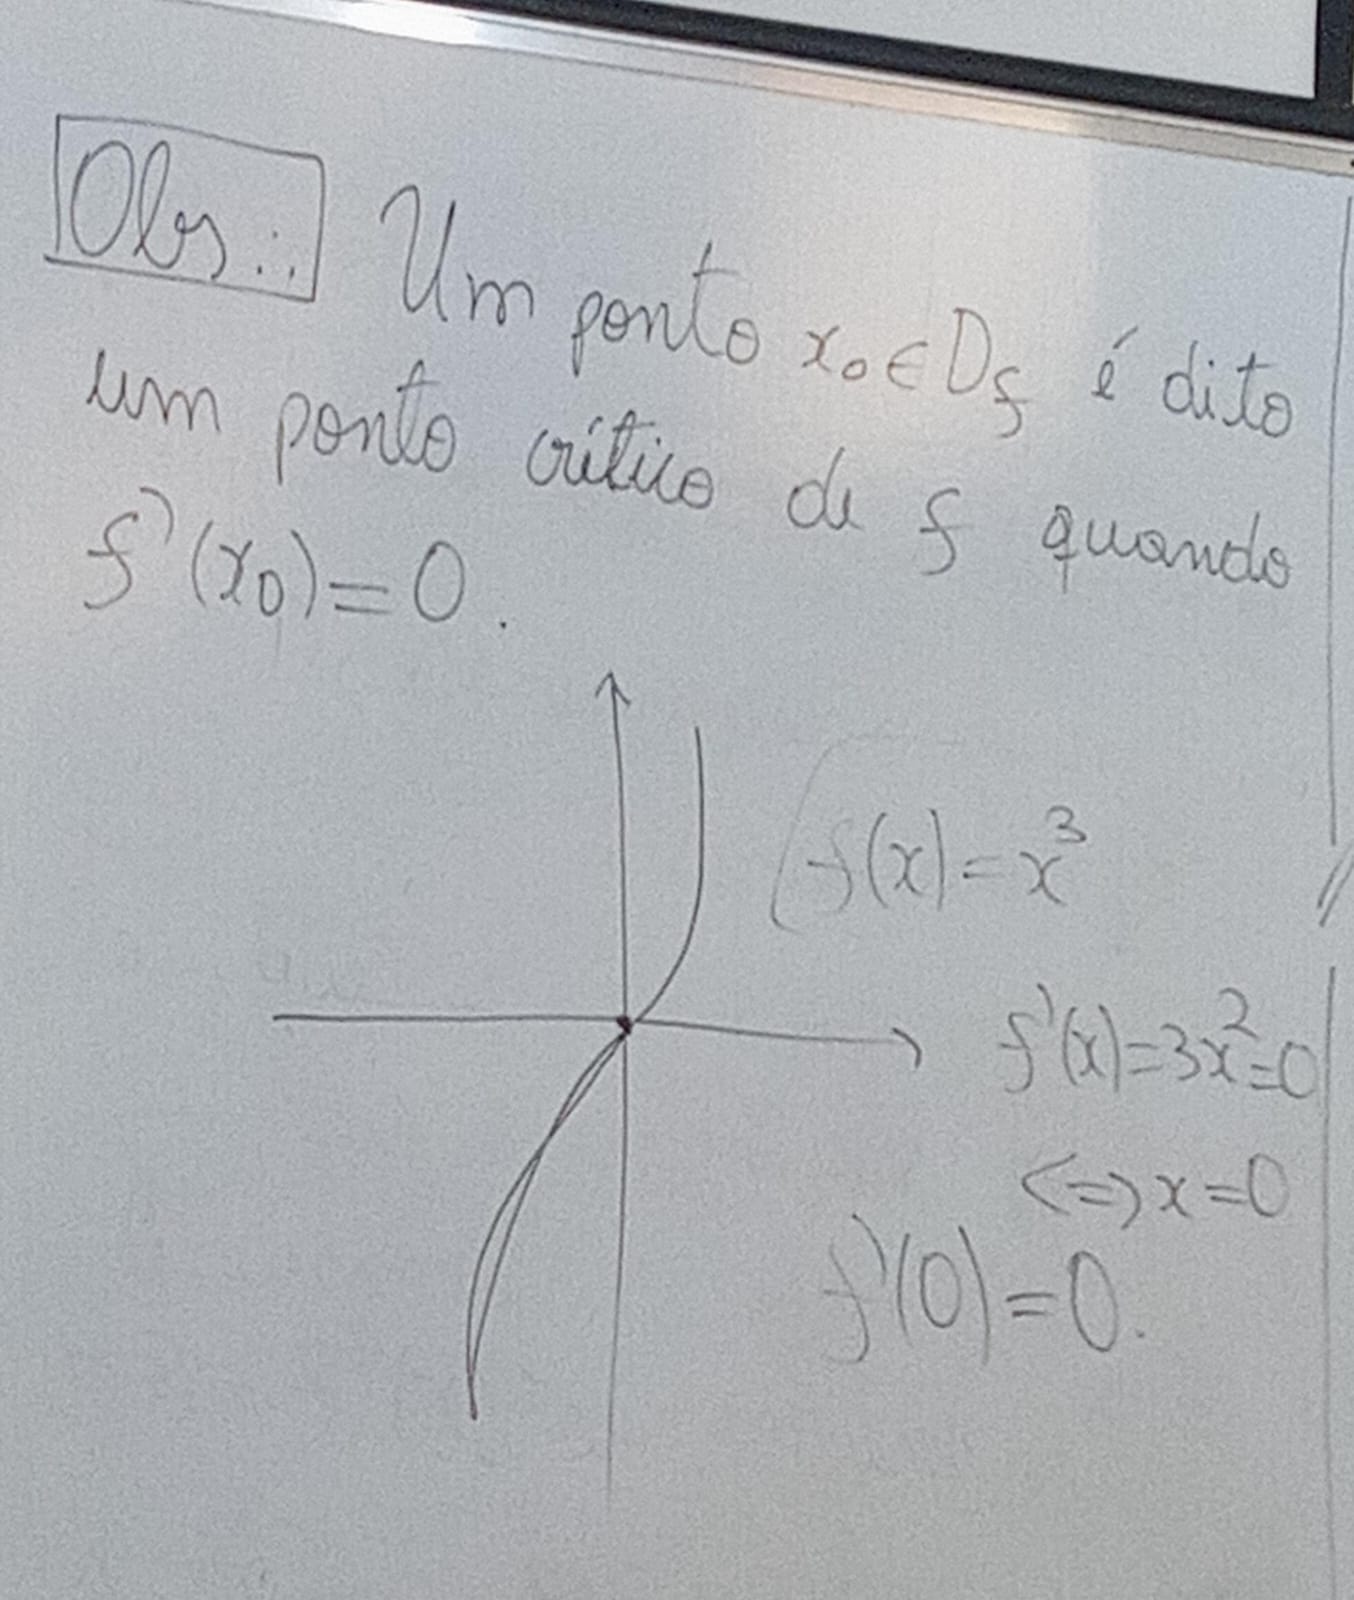 Obs.: Um ponto x₀ ∈ D_f é dito
um ponto crítico de f quando
f'(x₀) = 0.
f(x) = x³
f'(x) = 3x² = 0
<=> x = 0
f'(0) = 0.